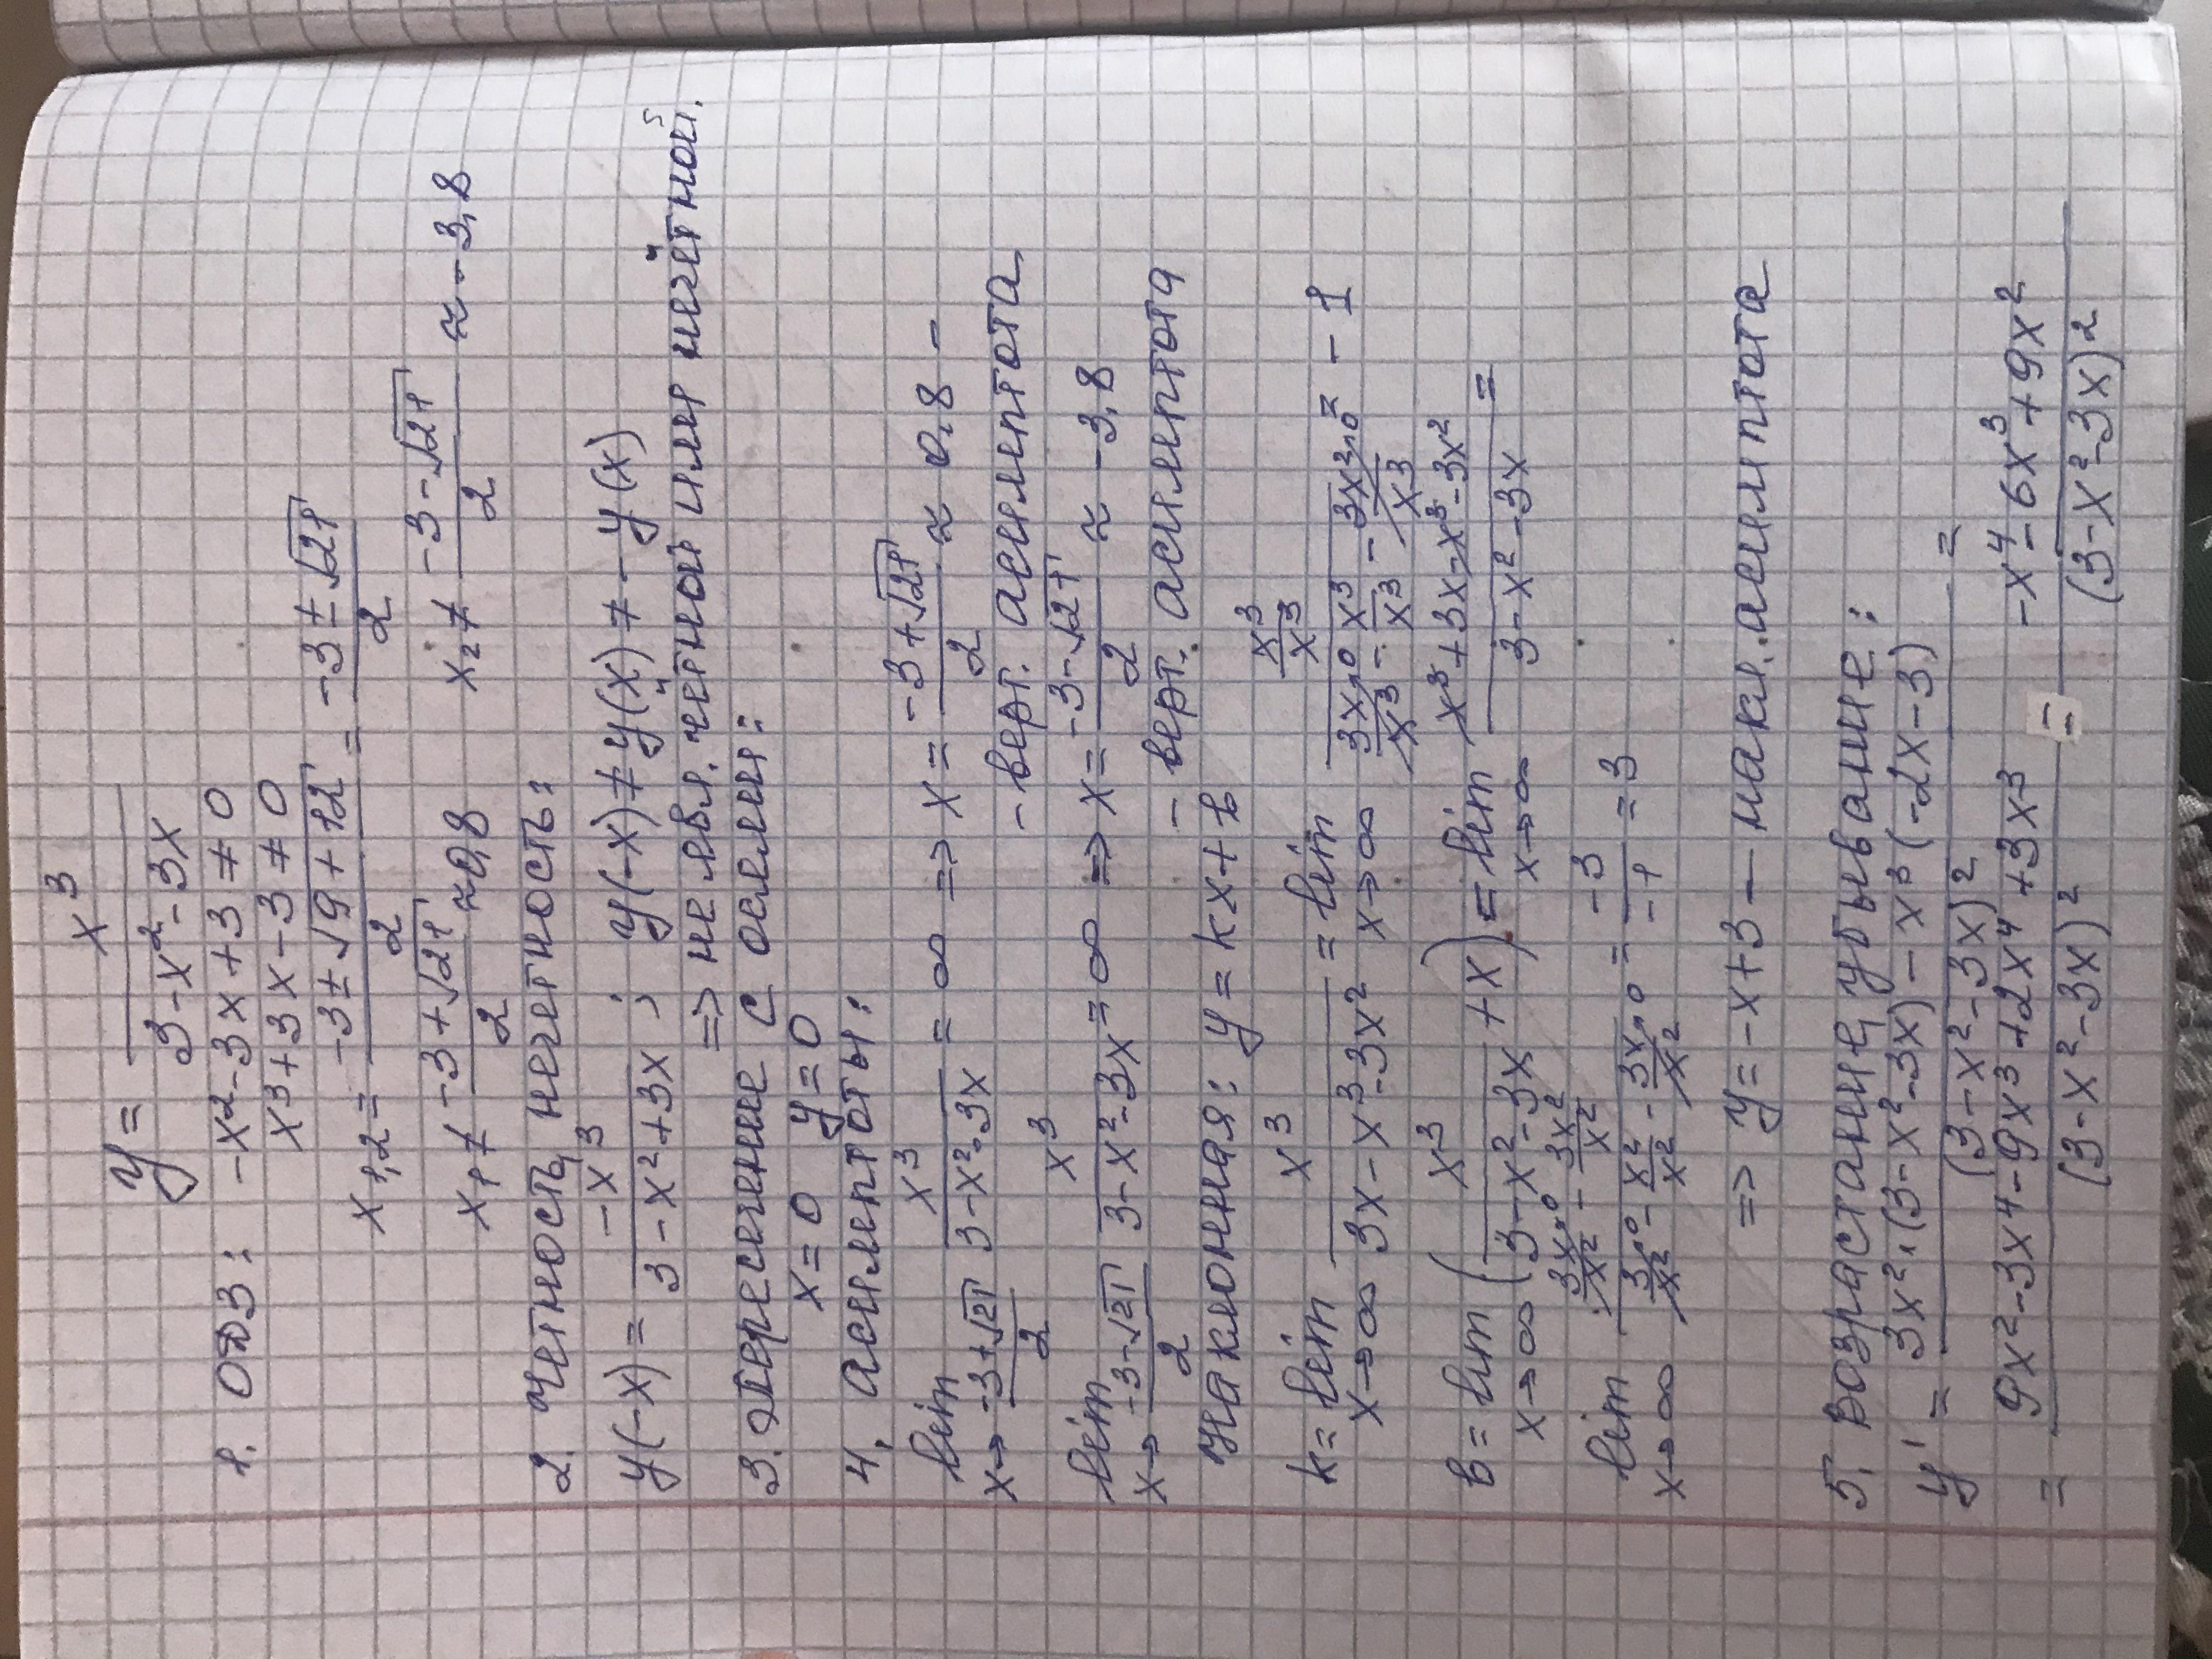 y = x³ / (3 - x² - 3x)
1. ОДЗ: -x² - 3x + 3 ≠ 0
x³ + 3x - 3 ≠ 0
x₁,₂ = (-3 ± √(9 + 12)) / 2 = (-3 ± √21) / 2
x₁ ≠ (-3 + √21) / 2 ≈ 0,8 x₂ ≠ (-3 - √21) / 2 ≈ -3,8
2. Четность, нечетность:
y(-x) = -x³ / (3 - x² + 3x) ; y(-x) ≠ y(x) ≠ -y(x)
=> не явл. чётной или нечётной.
3. Пересечение с осями:
x = 0 y = 0
4. Асимптоты:
lim x→(-3+√21)/2 x³ / (3 - x² - 3x) = ∞ => x = (-3 + √21) / 2 ≈ 0,8 -
- верт. асимптота
lim x→(-3-√21)/2 x³ / (3 - x² - 3x) = ∞ => x = (-3 - √21) / 2 ≈ -3,8
- верт. асимптота
Наклонная: y = kx + b
k = lim x→∞ x³ / (3x - x³ - 3x²) = lim x→∞ (x³/x³) / (3x/x³ →0 - x³/x³ - 3x²/x³ →0) = -1
b = lim x→∞ (x³ / (3 - x² - 3x) + x) = lim x→∞ (x³ + 3x - x³ - 3x²) / (3 - x² - 3x) =
lim x→∞ (3x/x² →0 - 3x²/x²) / (3/x² →0 - x²/x² - 3x/x² →0) = -3 / -1 = 3
=> y = -x + 3 - накл. асимптота
5. Возрастание, убывание:
y' = (3x² · (3 - x² - 3x) - x³ (-2x - 3)) / (3 - x² - 3x)² =
= (9x² - 3x⁴ - 9x³ + 2x⁴ + 3x³) / (3 - x² - 3x)² = (-x⁴ - 6x³ + 9x²) / (3 - x² - 3x)²